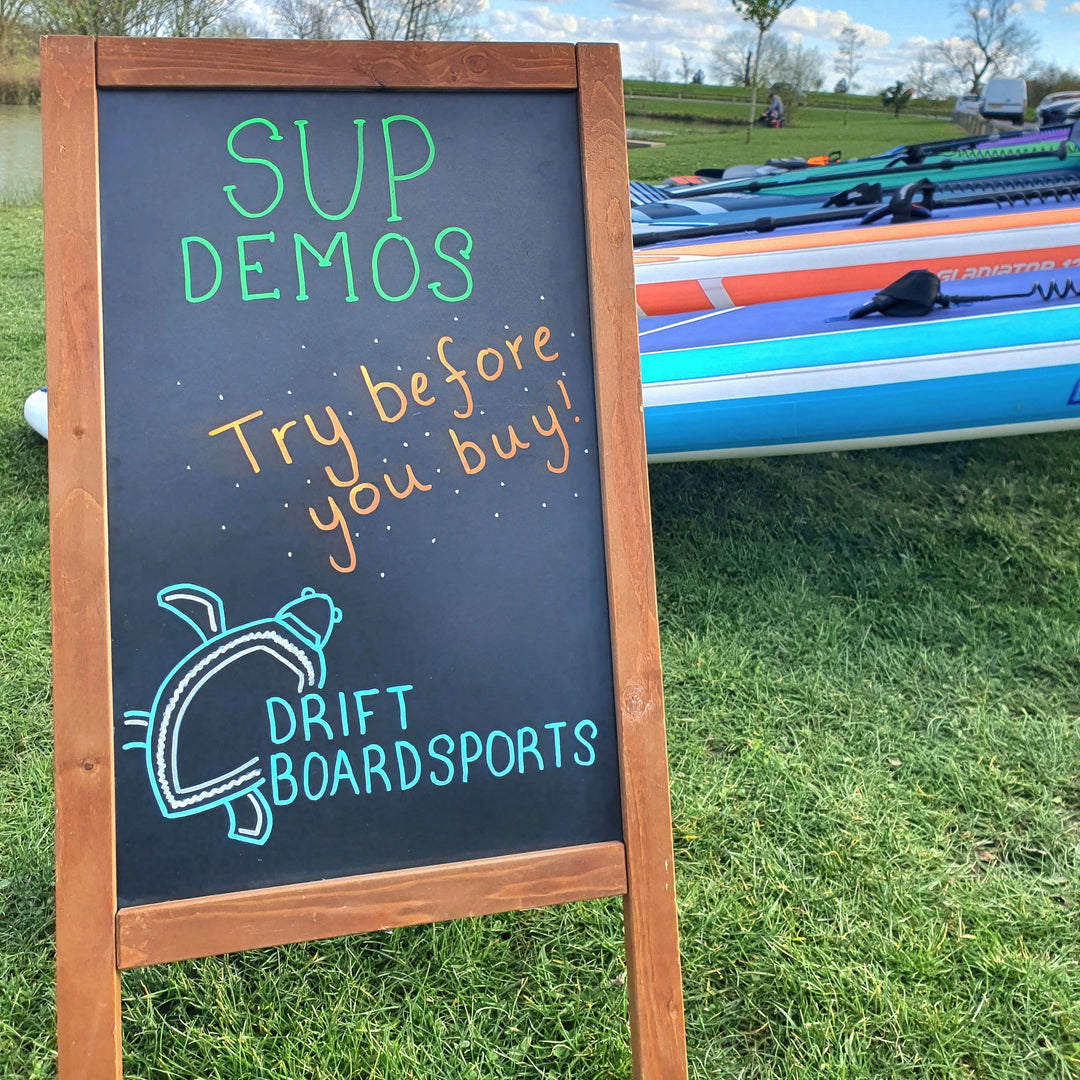 SUP
DEMOS
Try before
you buy!
DRIFT
BOARDSPORTS
GLADIATOR